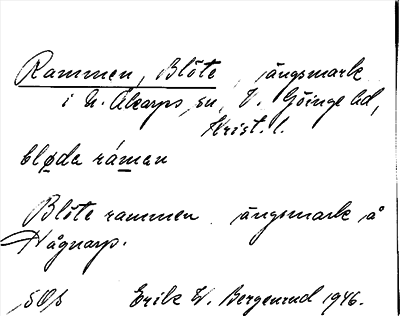 Rammen, Blöte, ängsmark
i N. Åkarps sn, V. Göinge hd,
Krist. l.
bløda ráman
Blöte rammen ängsmark å
Hågnarp.
Erik W. Bergenrud 1946.